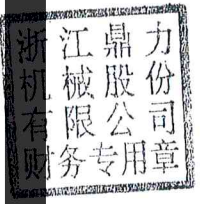 浙江鼎力
机械股份
有限公司
财务专用章